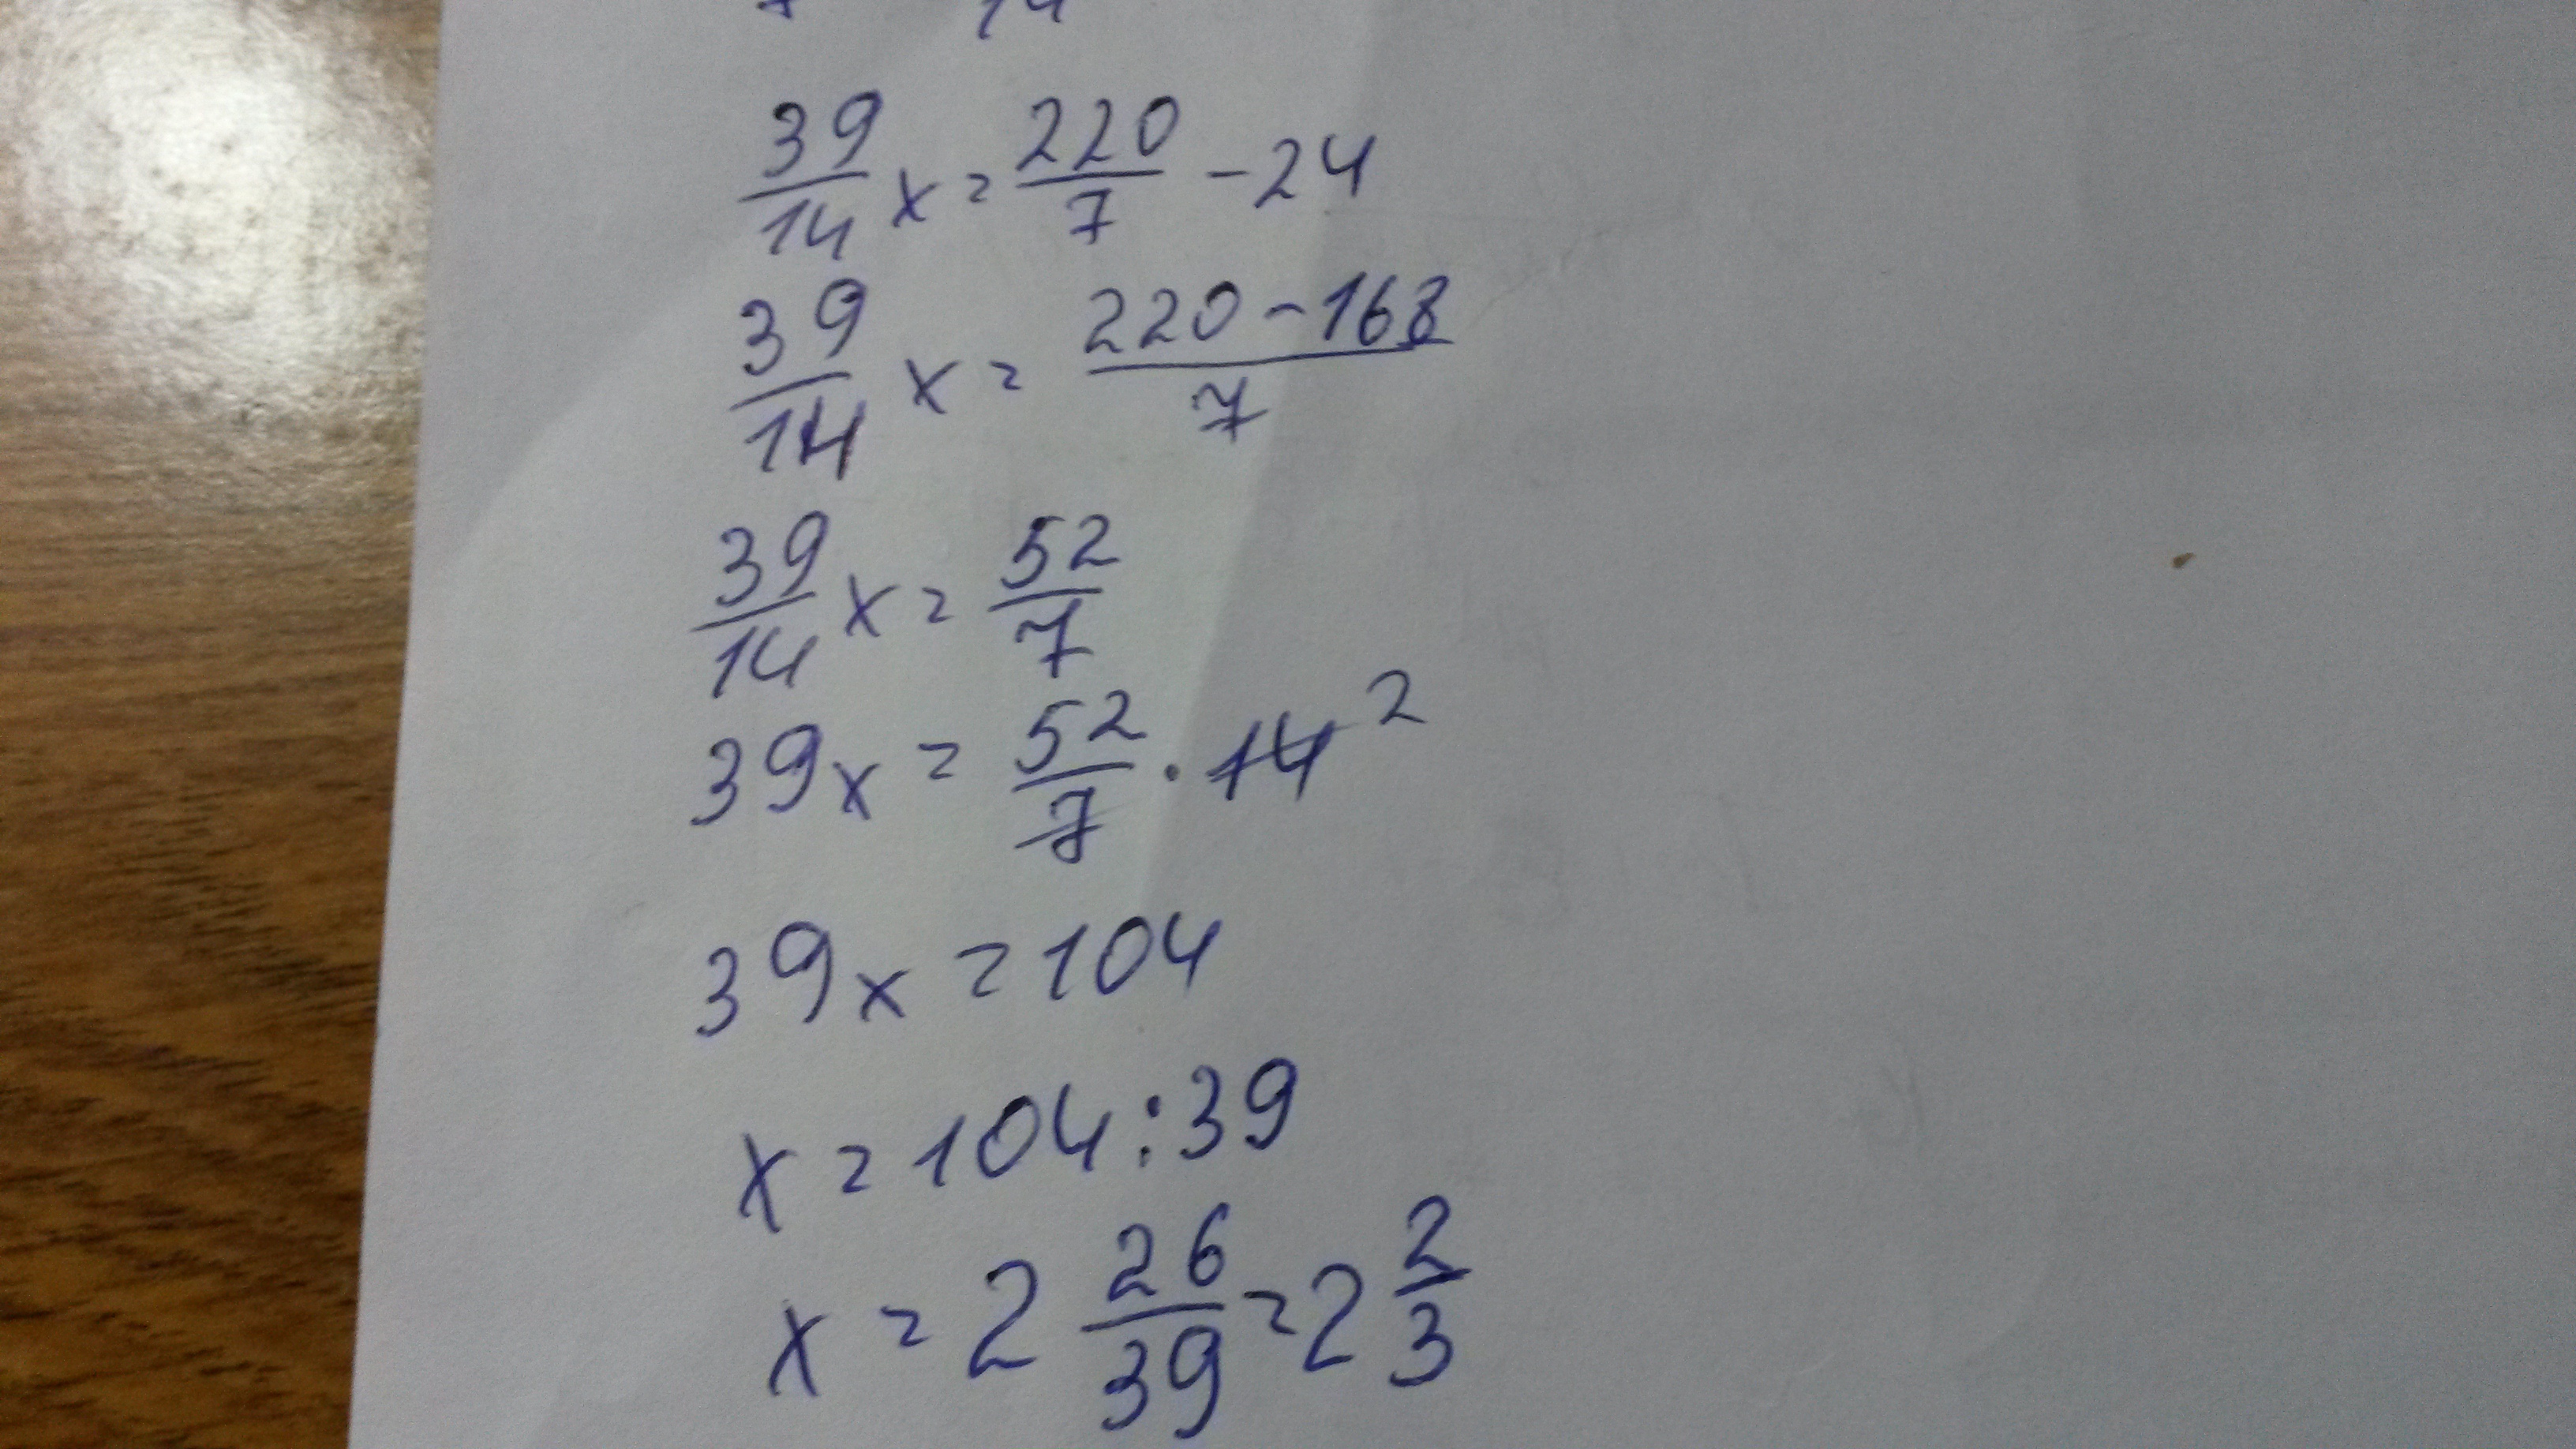 14
39/14 x = 220/7 - 24
39/14 x = (220 - 168)/7
39/14 x = 52/7
39x = 52/7 · 14 2
39x = 104
x = 104 : 39
x = 2 26/39 = 2 2/3